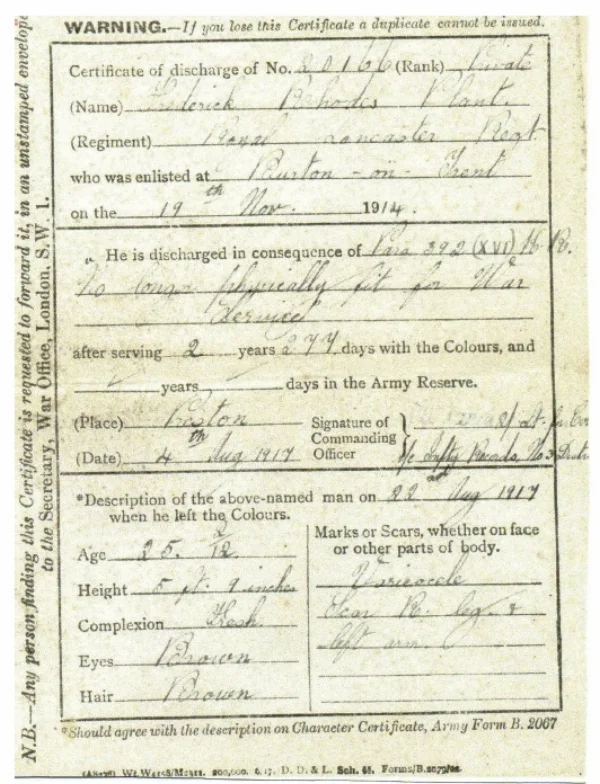 WARNING.—If you lose this Certificate a duplicate cannot be issued.
Certificate of discharge of No. 20166 (Rank) Private
(Name) Frederick Rhodes Plant.
(Regiment) Royal Lancaster Regt
who was enlisted at Burton-on-Trent
on the 19th Nov. 1914.
He is discharged in consequence of Para 392 (XVI) K. R.
No longer physically fit for War
Service
after serving 2 years 277 days with the Colours, and
years days in the Army Reserve.
(Place) Preston
Signature of
Commanding
Officer
(Date) 4th Aug 1917
i/c Infty Records, No 3
*Description of the above-named man on 22nd Aug 1917
when he left the Colours.
Age 25. 2/12
Height 5 ft. 9 inches
Complexion Fresh
Eyes Brown
Hair Brown
Marks or Scars, whether on face
or other parts of body.
Varicocele
Scar R. leg. &
left arm.
*Should agree with the description on Character Certificate, Army Form B. 2067
200,000. 6,17. D. D. & L. Sch. 45. Forms/B.2079/22.
N.B.—Any person finding this Certificate is requested to forward it, in an unstamped envelope
to the Secretary, War Office, London, S.W. 1.